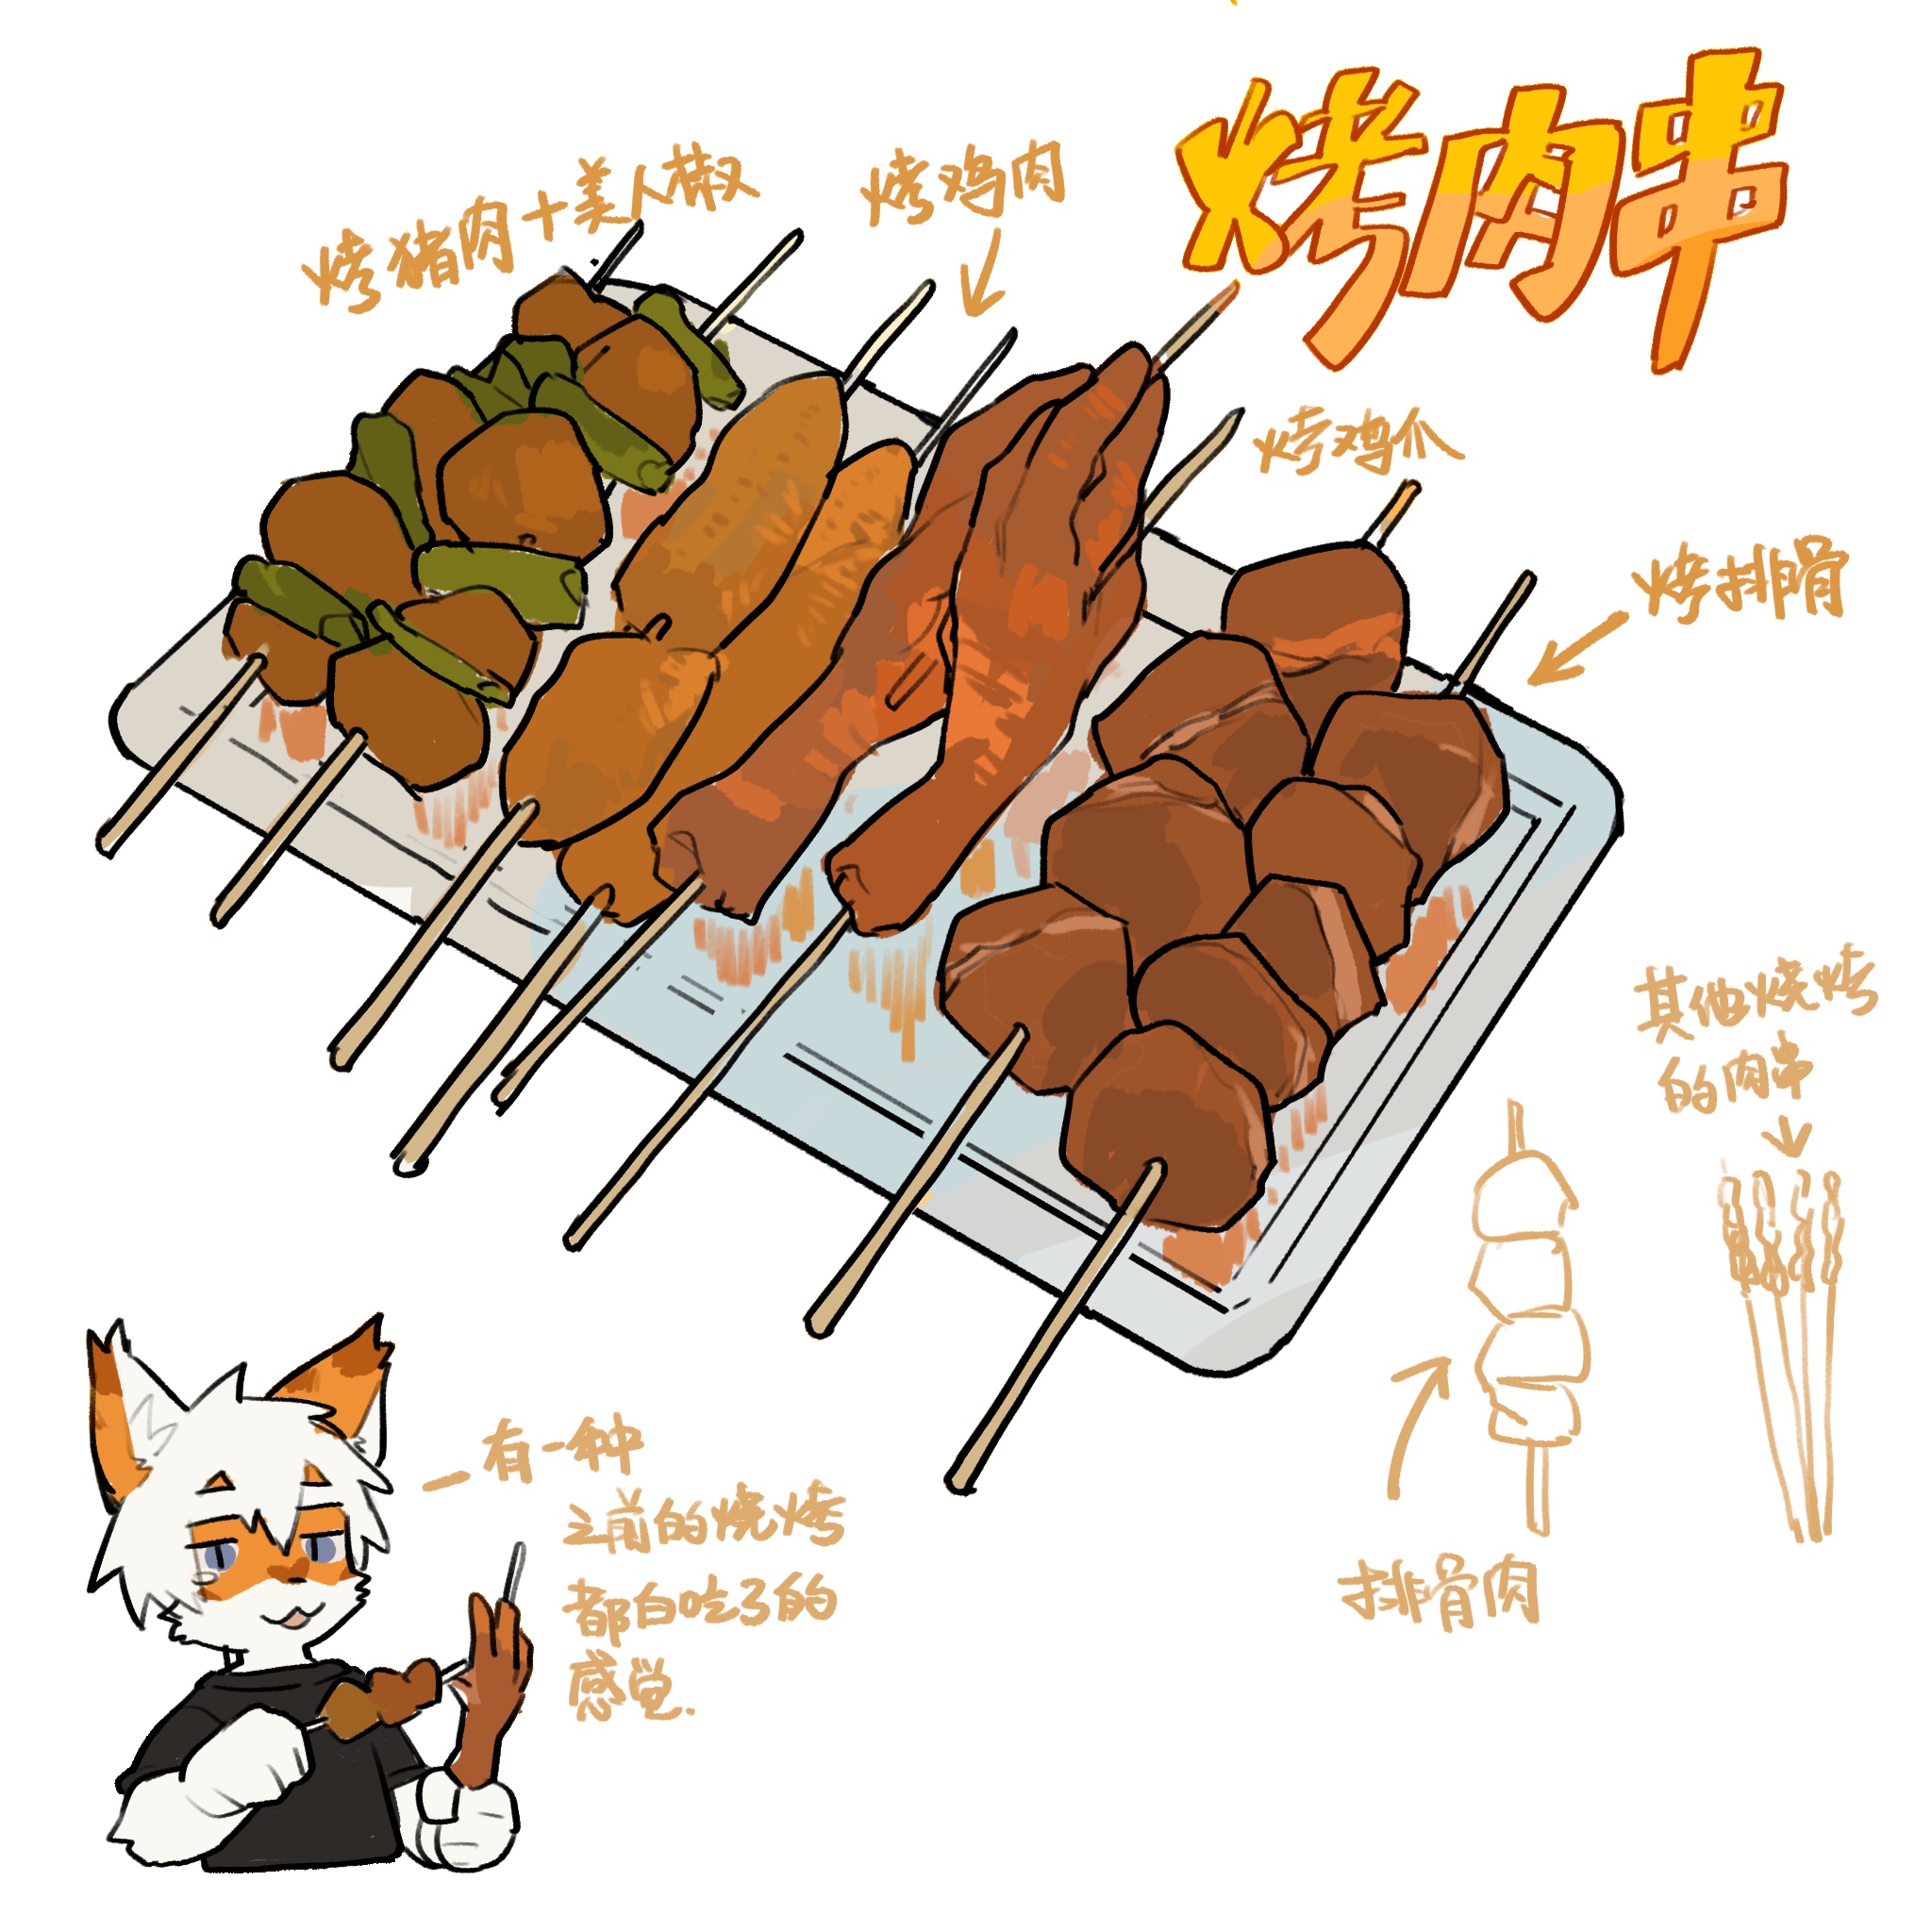 烤肉串
烤猪肉+美人椒
烤鸡肉
烤鸡爪
烤排骨
其他烧烤
的肉串
排骨肉
一有一种
之前的烧烤
都白吃了的
感觉.